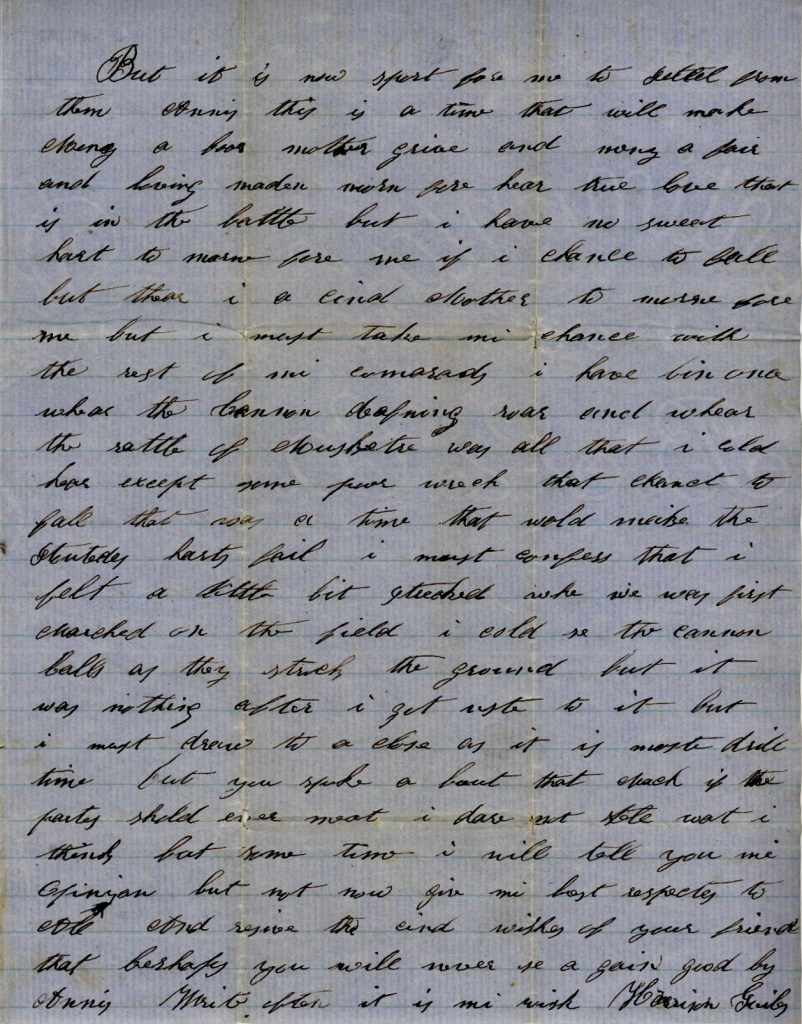 But it is now sport fore me to settel from
them Annis this is a time that will make
Meny a poor mother grive and meny a fair
and loving maden morn fore hear true love that
is in the battle but i have no sweat
hart to morne fore me if i chance to fall
but thear i a cind Mother to morne fore
me but i must take mi chance with
the rest of mi comarads i have bin once
whear the Cannon deafning roar and whear
the rattle of Musketre was all that i cold
hear except some poor wrech that chanct to
fall that was a time that wold make the
Stoutedes harts fail i must confess that i
felt a little bit whe we was first
Marched on the field i cold se the cannon
balls as they struck the ground but it
was nothing after i got uste to it but
i must draw to a close as it is moste drill
time but you spoke a bout that Mach if the
partes shold ever meat i dare not tell wat i
think but some time i will tell you mi
Opinion but not now give mi best respectes to
All And resive the cind wishes of your friend
that berhaps you will never se a gain good by
Annis Write often it is mi wish Harrison